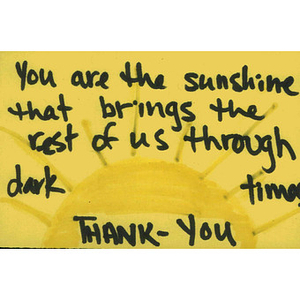 You are the sunshine
that brings the
rest of us through
dark times
THANK-YOU